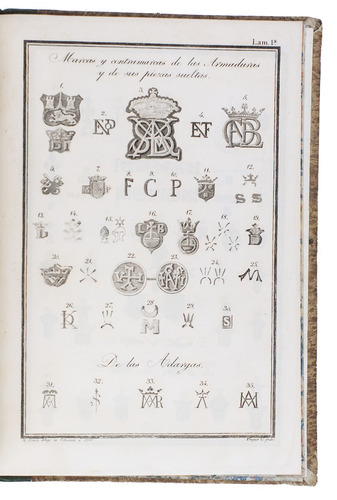 Lam. 1ª
Marcas y contramarcas de las Armaduras
y de sus piezas sueltas.
1. 2. 3. 4. 5.
NP NF
6. 7. 8. 9. 10. 11. 12.
F C P SS
13. 14. 15. 16. 17. 18. 19.
L B
20. 21. 22. 23. 24. 25.
26. 27. 28. 29. 30.
M S
De las Adargas.
31. 32. 33. 34. 35.